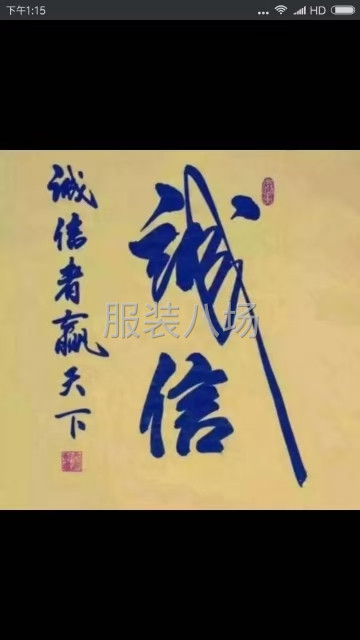 下午1:15
HD
诚信
诚信者赢天下
服装八场